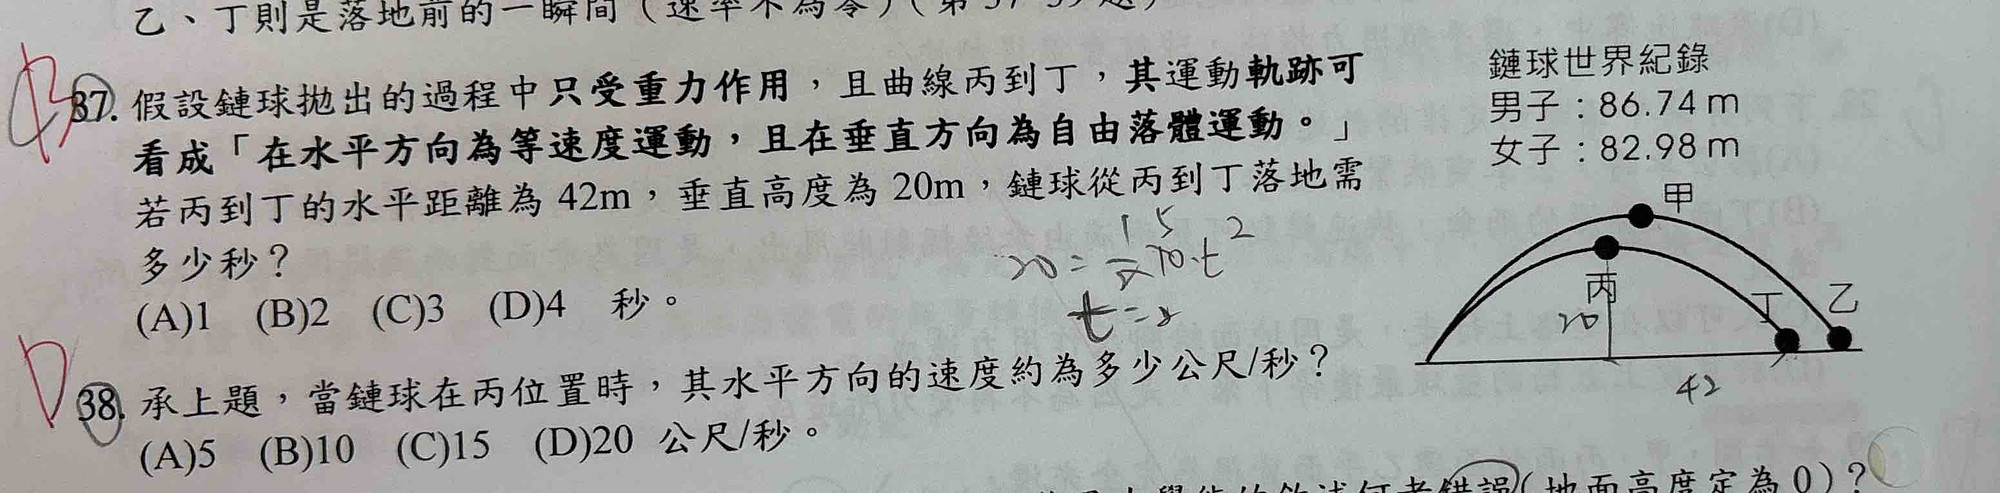 乙、丁則是落地前的一瞬間(速率不為零)(第37-39題)
37. 假設鏈球拋出的過程中只受重力作用，且曲線丙到丁，其運動軌跡可
看成「在水平方向為等速度運動，且在垂直方向為自由落體運動。」
若丙到丁的水平距離為 42m，垂直高度為 20m，鏈球從丙到丁落地需
多少秒？
(A)1 (B)2 (C)3 (D)4 秒。
20 = 1/2 10·t² 5
t=2
D
38. 承上題，當鏈球在丙位置時，其水平方向的速度約為多少公尺/秒？
(A)5 (B)10 (C)15 (D)20 公尺/秒。
鏈球世界紀錄
男子：86.74 m
女子：82.98 m
甲
丙
丁
乙
20
42
何者錯誤(地面高度定為 0)？